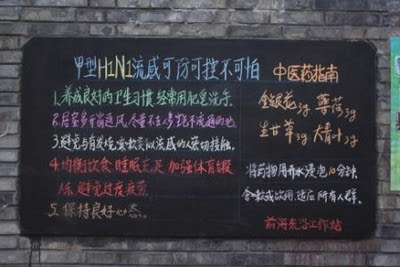 甲型H1N1流感可防可控不可怕
1.养成良好的卫生习惯经常用肥皂洗手
2.居室多开窗通风,尽量不去人多, 不通风的地
3.避免与有发烧、咳嗽类似流感的人密切接触
4.均衡饮食 睡眠充足 加强体育锻
炼 避免过度疲劳
5.保持良好心态。
中医药指南
金银花3g 薄荷3g
生甘草3g 大青叶3g
将药物用开水浸泡10分钟
含漱或饮用,适应所有人群。
前海东沿工作站